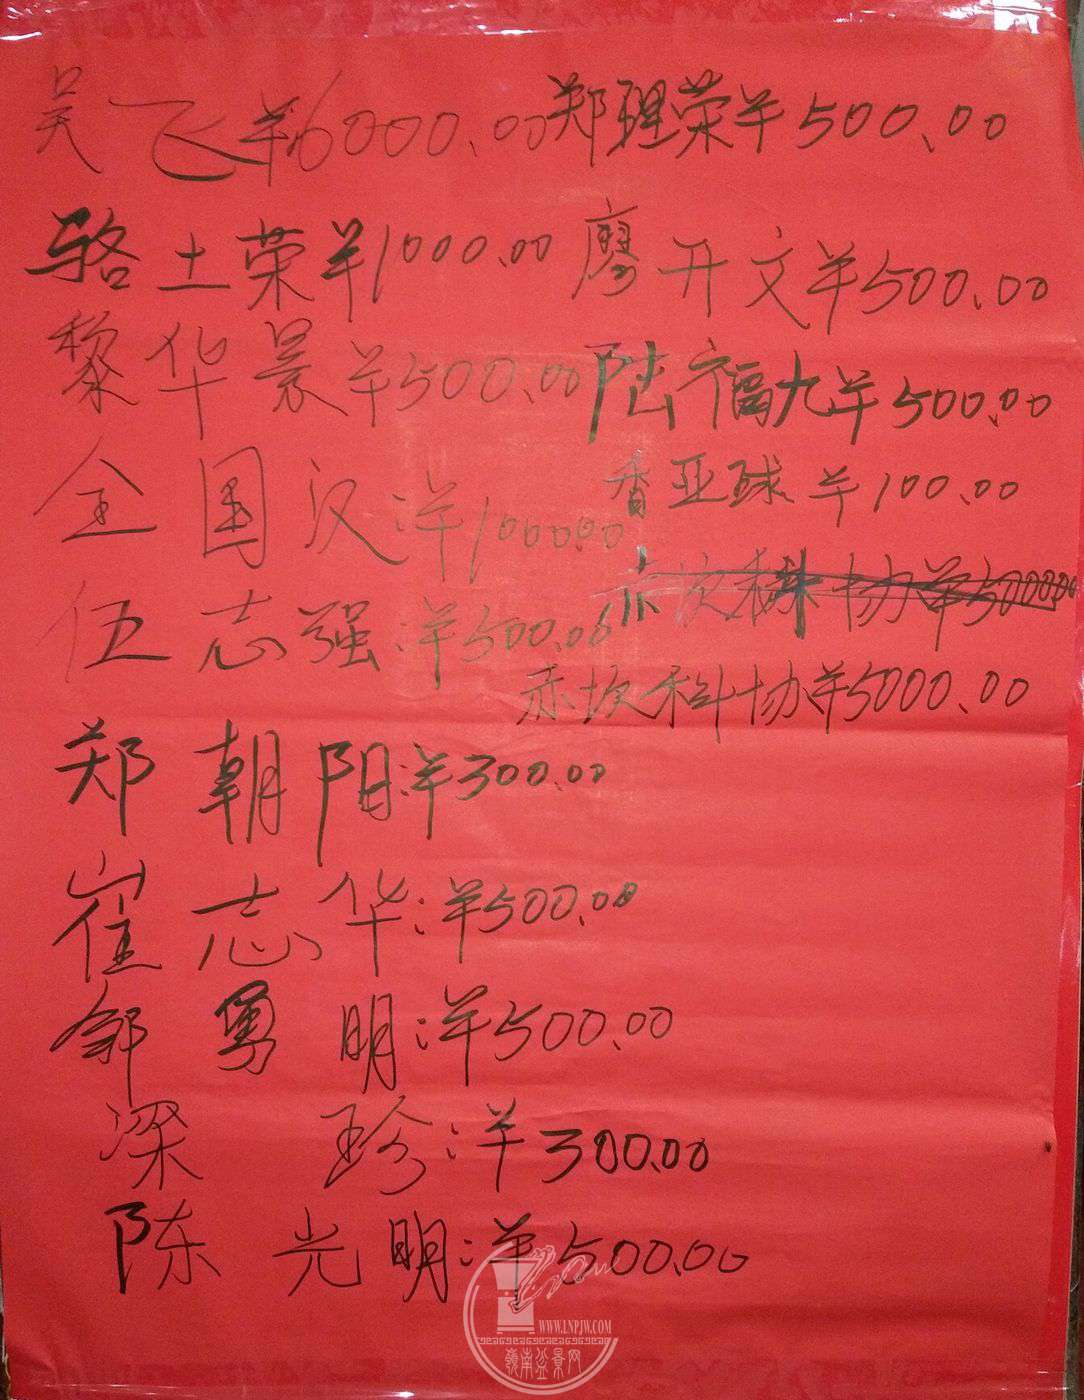 吴飞羊6000.00 郑理荣羊500.00
骆土荣羊1000.00 廖开文羊500.00
黎华景羊500.00 陆福九羊500.00
全国汉:洋1000.00 香亚球羊100.00
伍志强:洋500.00 协羊5000.00
赤坎科协羊5000.00
郑朝阳:洋300.00
崔志华:洋500.00
邹勇明:洋500.00
深珍:洋300.00
陈光明:洋500.00
WWW.LNPJW.COM
嶺南盆景网